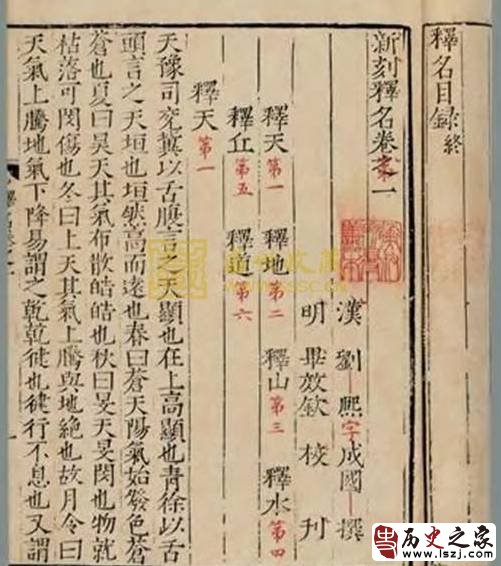 釋名目錄終
新刻釋名卷第一
漢 劉熙字成國 撰
明 畢效欽 校刊
釋天第一 釋地第二 釋山第三 釋水第四
釋丘第五 釋道第六
釋天第一
天豫司兖冀以舌腹言之天顯也在上高顯也青徐以舌
頭言之天垣也垣然高而遠也春曰蒼天陽氣始發色蒼
蒼也夏曰昊天其氣布散皓皓也秋曰旻天旻閔也物就
枯落可閔傷也冬曰上天其氣上騰與地絶也故月令曰
天氣上騰地氣下降易謂之乾乾健也健行不息也又謂
历史之家
www.lszj.com